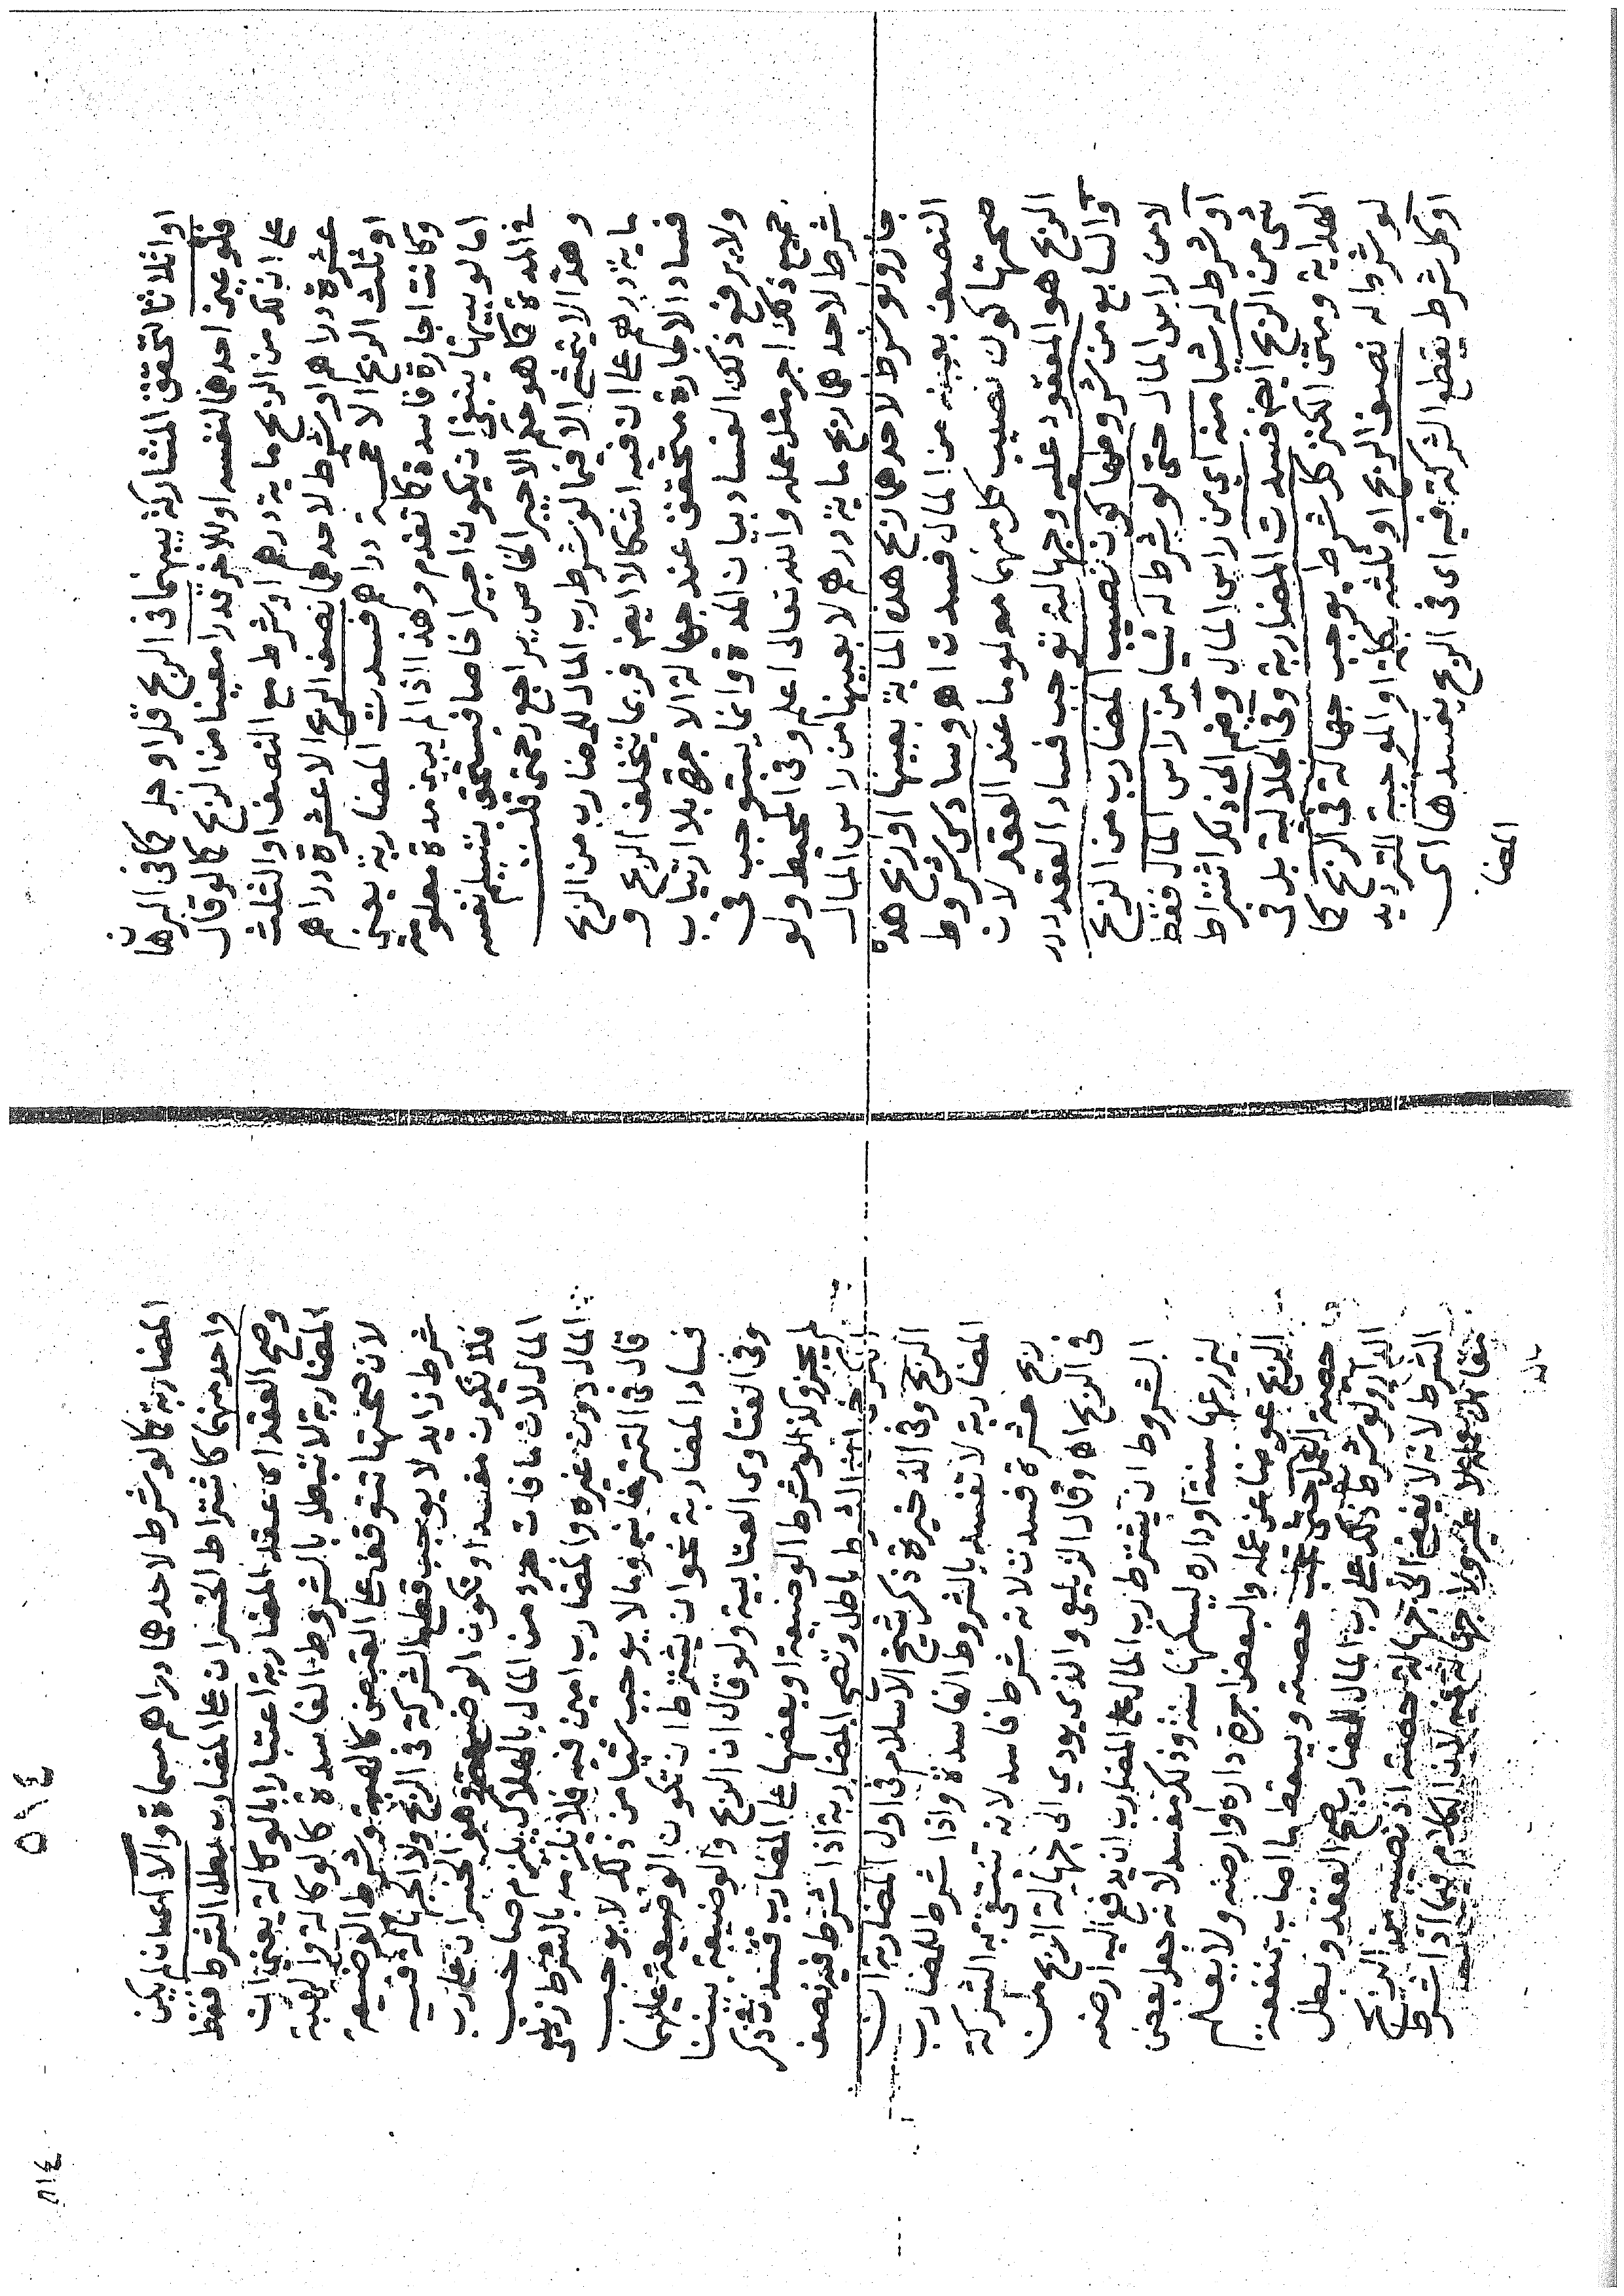 اواثلاثا لتحقق المشاركة بينهما فى الربح قل او جل كما فى البرهان
فلو عين احدهما لنفسه او للاخر قدرا معينا من الربح كما لو قال
على ان لك من الربح ماية درهم او شرط مع النصف او الثلث
عشرة دراهم او شرط لاحدهما نصف الربح الا عشرة دراهم
او ثلث الربح الا خمسة دراهم فسدت المضاربة يعنى
وكانت اجارة فاسدة كما تقدم وهذا اذا لم يبين مدة معلومة
اما لو بينها ينبغى ان يكون اجيرا خاصا فيستحق بتسليم نفسه
فى المدة كما هو حكم الاجير الخاص يراجع رحمتى قلت
وهذا لا يتمشى الا فيما لو شرط رب المال للمضارب من الربح
ماية درهم على ان فيه اشكالا ايضا فربما يتخلف الربح و
فساد الاجارة متحقق عند جهالة الاجرة بلا ارتياب
ولا يرفع ذلك الفساد بيان المدة وانما يستوجب فى
جميع ذلك اجر مثل عمله والله تعالى اعلم وفى المحيط ولو
شرط لاحدهما ربح ماية درهم لا بعينها من راس المال
جاز ولو شرط لاحدهما ربح هذه الماية بعينها او ربح هذا
النصف بعينه من المال فسدت اه وسادس شروط
صحتها كون نصيب كل منهما معلوما عند العقد لان
الربح هو المعقود عليه وجهالته توجب فساد العقد درر
والسابع من شروطها كون نصيب المضارب من الربح
لا من راس المال حتى لو شرط له شيا من راس المال فقط
او شرط له شيا منه اي من راس المال وضم الى ذلك اشتراط
شئ من الربح ايضا فسدت المضاربة وفى الجلالية بل فى
الهداية ومتن الكنز كل شرط يوجب جهالة فى الربح كما
لو شرط له نصف الربح او ثلثه بكلمة او الموجبة للترديد
او كل شرط يقطع الشركة فيه اى فى الربح يفسدها اى
المضا
٥١٤
المضاربة كما لو شرط لاحدهما دراهم مسماة والا اى ان لم يكن
واحد منهما كاشتراط الخسران على المضارب بطل الشرط فقط
وصح العقد اى عقد المضاربة اعتبارا بالوكالة يعنى ان
المضاربة لا تبطل بالشروط الفاسدة كالوكالة والهبة
لان صحتها تتوقف على القبض كالهبة وشرط الوضيعة
شرط زايد لا يوجب قطع الشركة فى الربح ولا الجهالة فيه
فلا يكون مفسدا وتكون الوضيعة وهو الخسران على رب
المال لان ما فات جزء من المال بالهلاك يلزم صاحب
المال دون غيره والمضارب امين فيه فلا يلزمه بالشرط زيلعى
قال فى التترخانيه وما لا يوجب شيا من ذلك لا يوجب
فساد المضاربة نحو ان يشترطا ان تكون الوضيعة عليهما
وفى الفتاوى العتابية ولو قال ان الربح والوضيعة بيننا
لم يجز وكذا لو شرط الوضيعة او بعضها على المضارب فسدت ذكر
الكرخى ان الشرط باطل وتصح المضاربة اذا شرط فيه نصف
الربح وفى الذخيرة ذكر شيخ الاسلام فى اول المضاربة ان
المضاربة لا تفسد بالشروط الفاسدة واذا شرط للمضارب
ربح عشرة فسدت لانه شرط فاسد لانه تنتفى به الشركة
فى الربح اه وقال الزيلعى والذى يودي الى جهالة الربح من
الشروط ان يشترط رب المال على المضارب ان يدفع اليه ارضه
ليزرعها سنة او داره ليسكنها سنة وذلك مفسد لانه جعل بعض
الربح عوضا عن عمله والبعض اجرة داره او ارضه ولا يعلم
حصة العمل حتى تجب حصته ويسقط ما اصاب منفعة
الدار ولو شرط ذلك على رب المال للمضارب صح العقد وبطل
الشرط لانه لا يفضى الى جهالة حصته اذ نصيبه من الربح
مقابل بعمله لا غير ولا جهالة فيه لان الكلام فيما اذا شرط